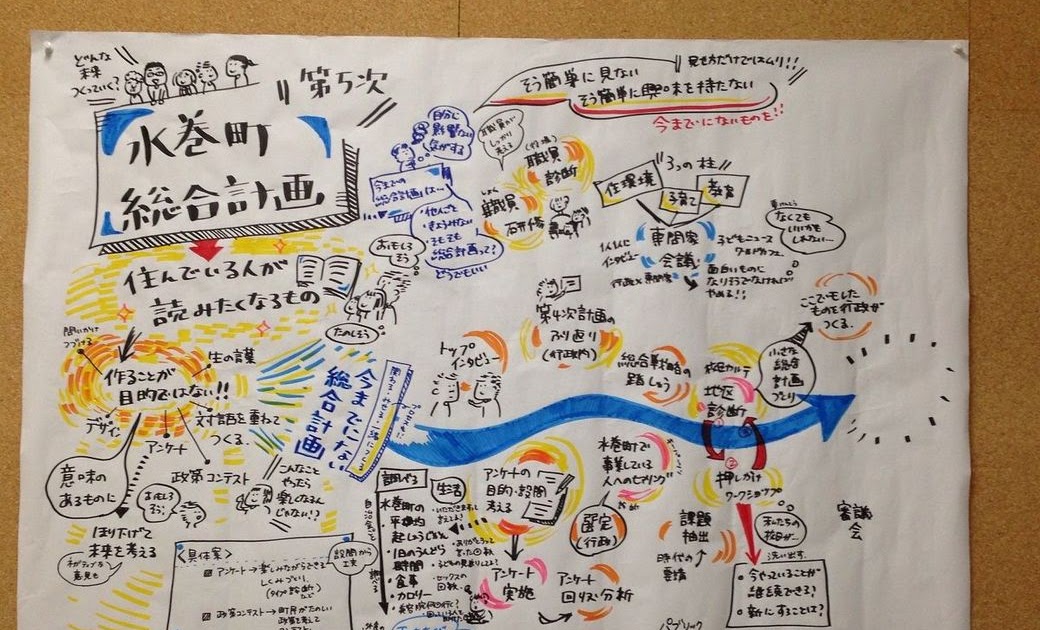 どんな
未来
つくっていく?
第5次
水巻町
総合計画
住んでいる人が
読みたくなるもの
おもしろそう
たのしそう
問いかけ
つづける
作ることが
目的ではない!!
デザイン
アンケート
生の言葉
対話を重ねて
つくる
政策コンテスト
意味の
あるものに
おもしろそう
ほり下げて
未来を考える
ネガティブな
意見も
こんなこと
やったら
楽しくなるん
じゃない!?
<具体案>
アンケート→楽しみながらできる
しくみづくり
(タイプ診断)
など
政策コンテスト→町民がたのしい
政策を考えて
設問から
工夫
自分に
影響ない
気がする
今までの
総合計画は…
・他人ごと
・きょうみない
・そもそも
総合計画って?
・どうでもいい
今までにない
総合計画
そう簡単に見ない
そう簡単に興味を持たない
見せ方だけではムリ!!
今までにないものを!!
職員が
しっかり
考える
職員
診断
職員
研修
3つの柱
住環境
子育て
教育
専門家
会議
1人1人に
インタビュー
行政×専門家
子どもニュース
ワールドカフェ
面白いものに
なりそうでなければ
やめる!!
なくても
いいかも
しれない…
トップ
インタビュー
第4次計画の
ふり返り
(行政内)
総合戦略の
踏しゅう
地区
診断
小さな
総合
計画
づくり
ここでもした
ものを行政が
つくる
調べる
生活
水巻町の
・平均的
起しょうじかん
・1日のうんどう
時間
・食事
・カロリー
アンケートの
目的・設問
考える
アンケート
実施
アンケート
回収・分析
水巻町で
事業している
人へのヒアリング
選定
(行政)
押しかけ
ワークショップ
課題
抽出
時代の
要請
私たちの
洗い出す
・今やっていることが
継続できる?
・新にすることは?
審議
会
パブリック